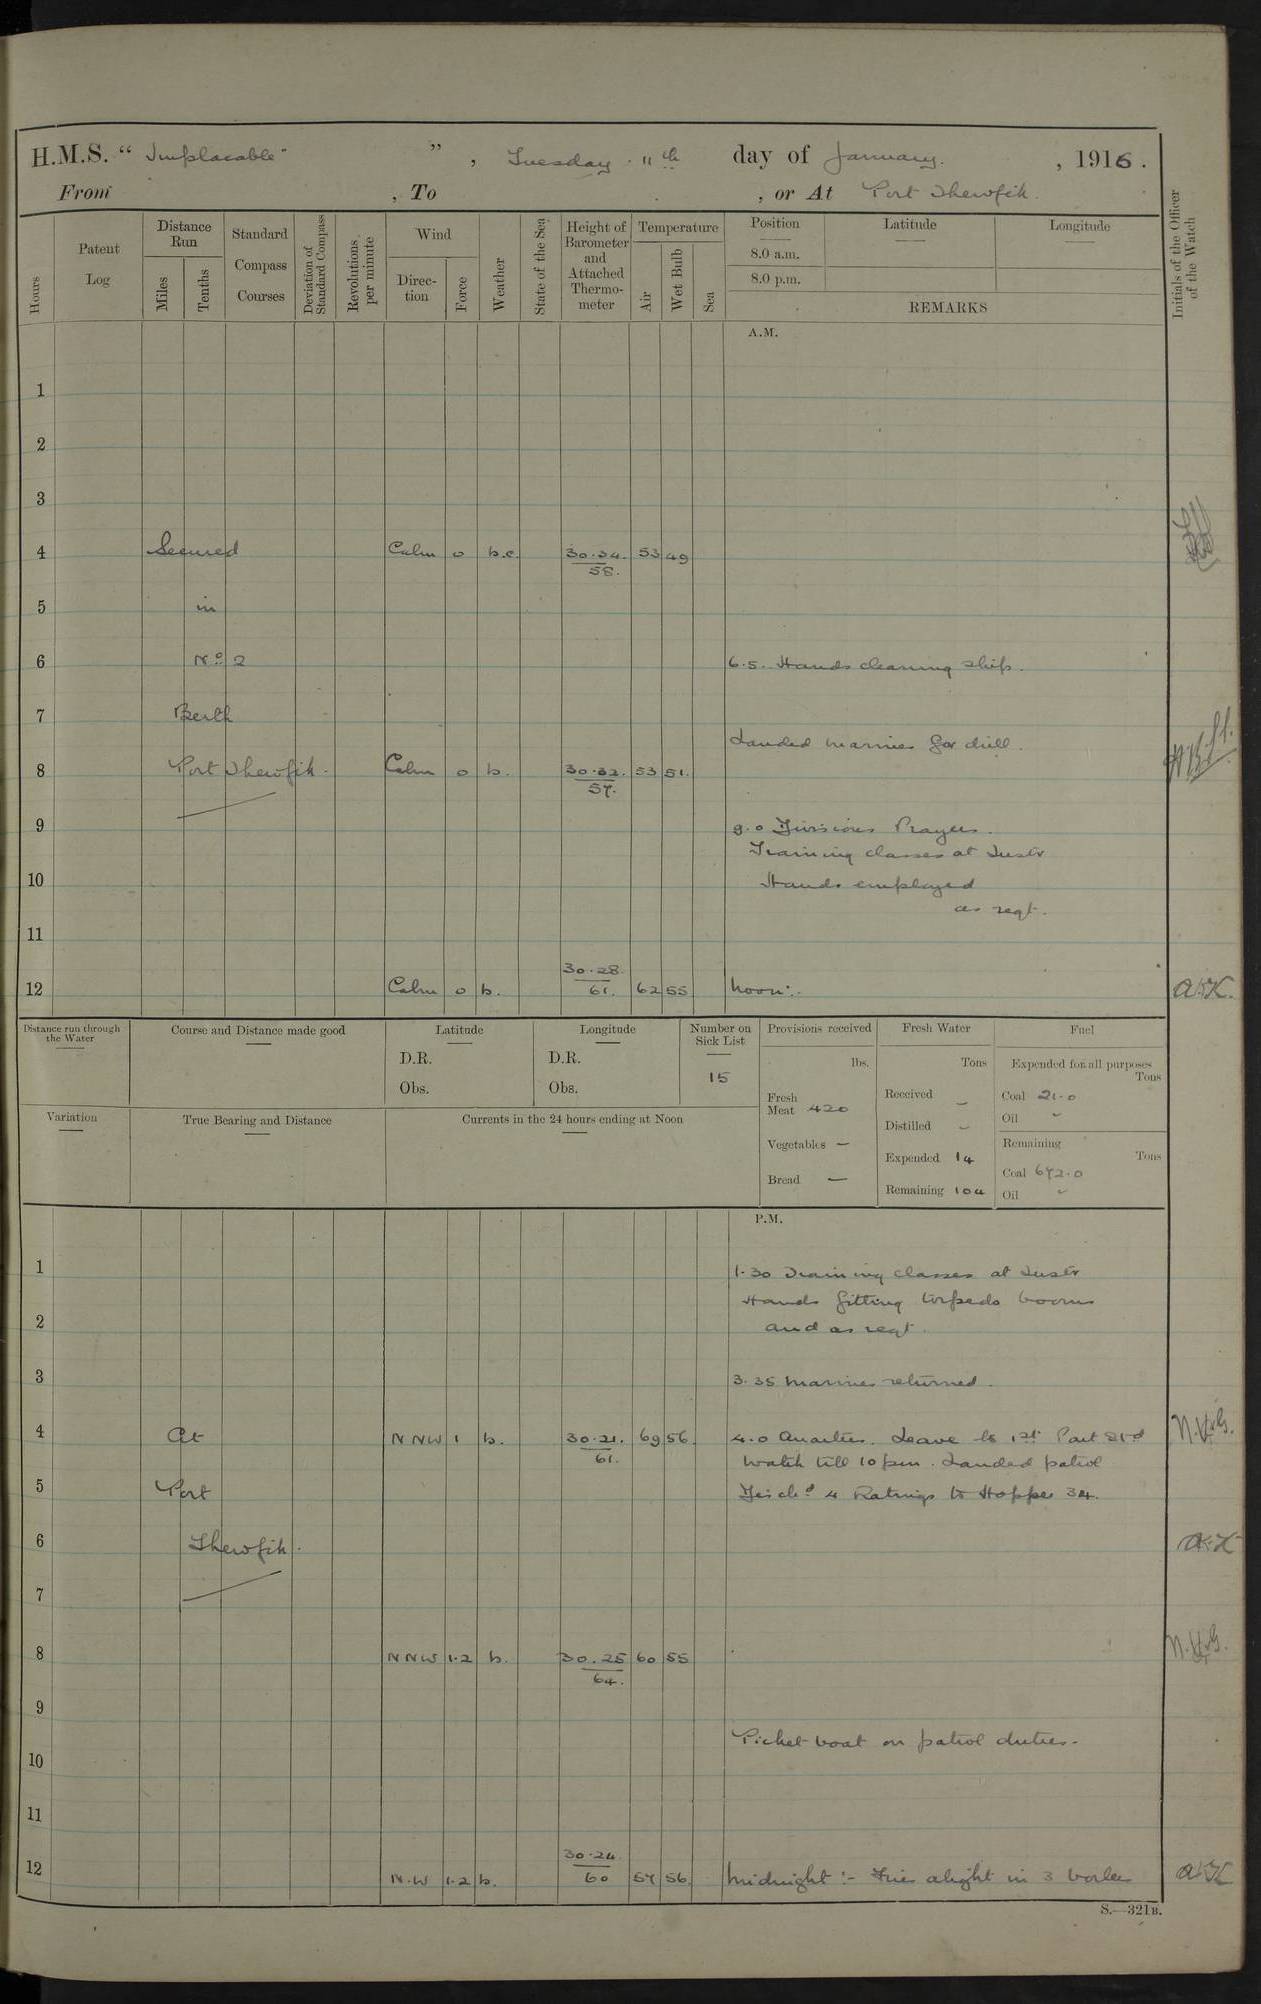 H.M.S. “ Implacable ” , Tuesday 11th day of January , 1916 .
From , To , or At Port Thewfik
Hours
Patent Log
Distance Run
Miles
Tenths
Standard Compass Courses
Deviation of Standard Compass
Revolutions per minute
Wind
Direction
Force
Weather
State of the Sea
Height of Barometer and Attached Thermometer
Temperature
Air
Wet Bulb
Sea
Position
8.0 a.m.
8.0 p.m.
Latitude
Longitude
REMARKS
Initials of the Officer of the Watch
A.M.
1
2
3
4 Secured Calm 0 b.c. 30.34. 58. 53 49
5 in
6 No 2 6.5. Hands cleaning ship.
7 Berth
Landed marines for drill.
8 Port Thewfik. Calm 0 b. 30.32. 57. 53 51.
9 9.0 Divisions Prayers.
Training classes at Instr
10 Hands employed
as reqt.
11
12 Calm 0 b. 30.28. 61. 62 55 Noon:- ABK.
Distance run through the Water
Course and Distance made good
Latitude
D.R.
Obs.
Longitude
D.R.
Obs.
Number on Sick List
15
Provisions received
lbs.
Fresh Meat 420
Vegetables —
Bread —
Fresh Water
Tons
Received -
Distilled -
Expended 14
Remaining 104
Fuel
Expended for all purposes
Tons
Coal 21.0
Oil -
Remaining
Tons
Coal 672.0
Oil -
Variation
True Bearing and Distance
Currents in the 24 hours ending at Noon
P.M.
1 1.30 Training classes at Instr
Hands fitting torpedo booms
2 and as reqt.
3 3.35 Marines returned.
4 At NNW 1 b. 30.21. 61. 69 56. 4.0 Quarters. Leave to 1st Part 2nd
Watch till 10 pm. Landed patrol
5 Port Disch'd 4 Ratings to Hopper 34.
6 Thewfik.
7
8 NNW 1.2 b. 30.25 64. 60 55
9
Picket boat on patrol duties.
10
11
12 N.W 1.2 b. 30.24 60 57 56. Midnight :- Fires alight in 3 boilers ABK
S.—321B.